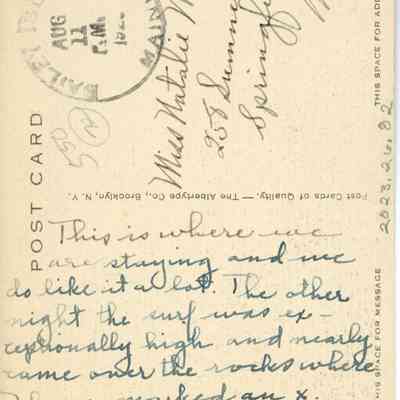 BAILEY
AUG
11
P.M.
MAINE
POST CARD
550
Miss Natalie
258 Sumne
Springfi
THIS SPACE FOR AD
Post Cards of Quality. — The Albertype Co., Brooklyn, N. Y.
2023.26.82
THIS SPACE FOR MESSAGE
This is where we
are staying and we
do like it a lot. The other
night the surf was ex-
ceptionally high and nearly
came over the rocks where
marked an x.